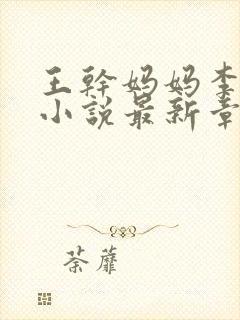 王幹妈妈李
小说最新章
荼蘼